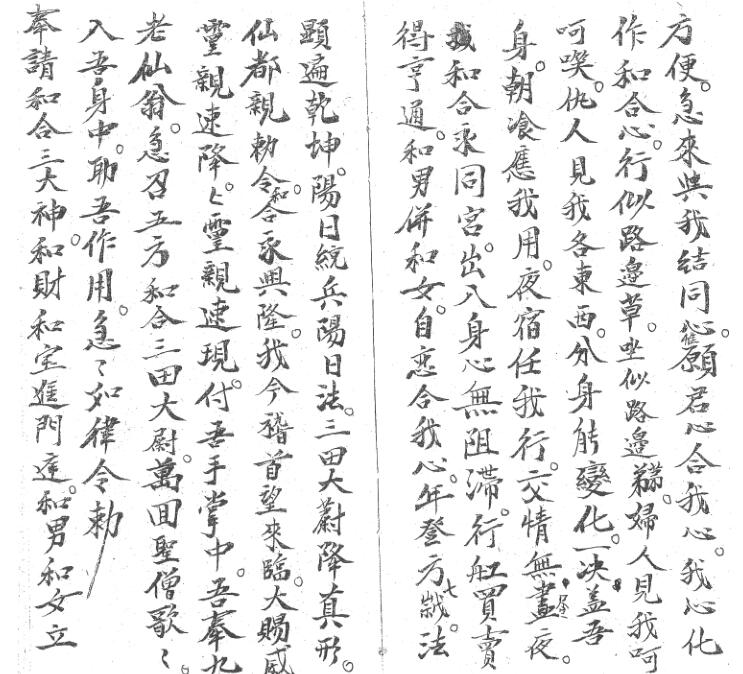 方便。急來與我結同心。惟願君心合我心。我心化
作和合心。行似路邊草。坐似路邊。婦人見我呵
呵喫。仇人見我各東西。分身能變化。一决蓋吾
身。朝飡應我用。夜宿任我行。交情無盡夜。
我和合永同宮。出入身心無阻滯。行舡買賣
得亨通。和男併和女。自恋合我心。年登方七歲。法
顕遍乾坤。陽日統兵陽日法。三田大尉降真形。
仙都親勅令。和合永興隆。我今稽首望來臨。大賜威
靈親速降。〻靈親速現。付吾手掌中。吾奉九
老仙翁。急召五方和合三田大尉萬回聖僧歌〻。
入吾身中。助吾作用。急〻如律令勅
奉請和合三大神。和財和宝進門庭。和男和女立